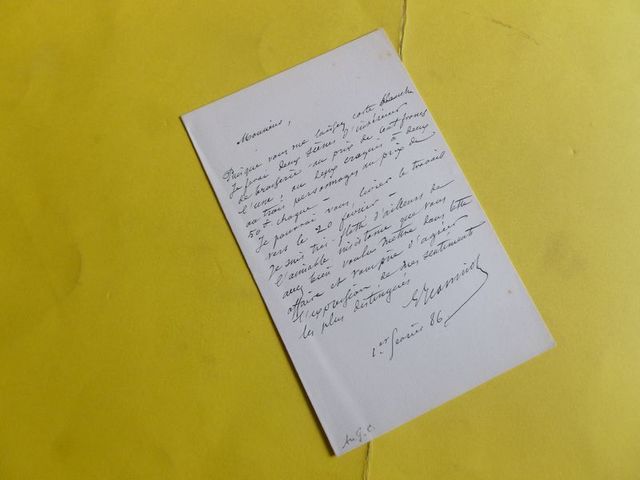 Monsieur,
Puisque vous me laissez carte blanche
Je ferai deux scènes d'intérieur
de brasserie au prix de cent francs
l'une; ou deux croquis à deux
ou trois personnages au prix de
50 f chaque —
Je pourrai vous livrer le travail
vers le 20 février —
Je suis très flatté d'ailleurs de
l'aimable insistance que vous
avez bien voulu mettre dans cette
affaire et vous prie d'agréer
l'expression de mes sentiments
les plus distingués
1er février 86